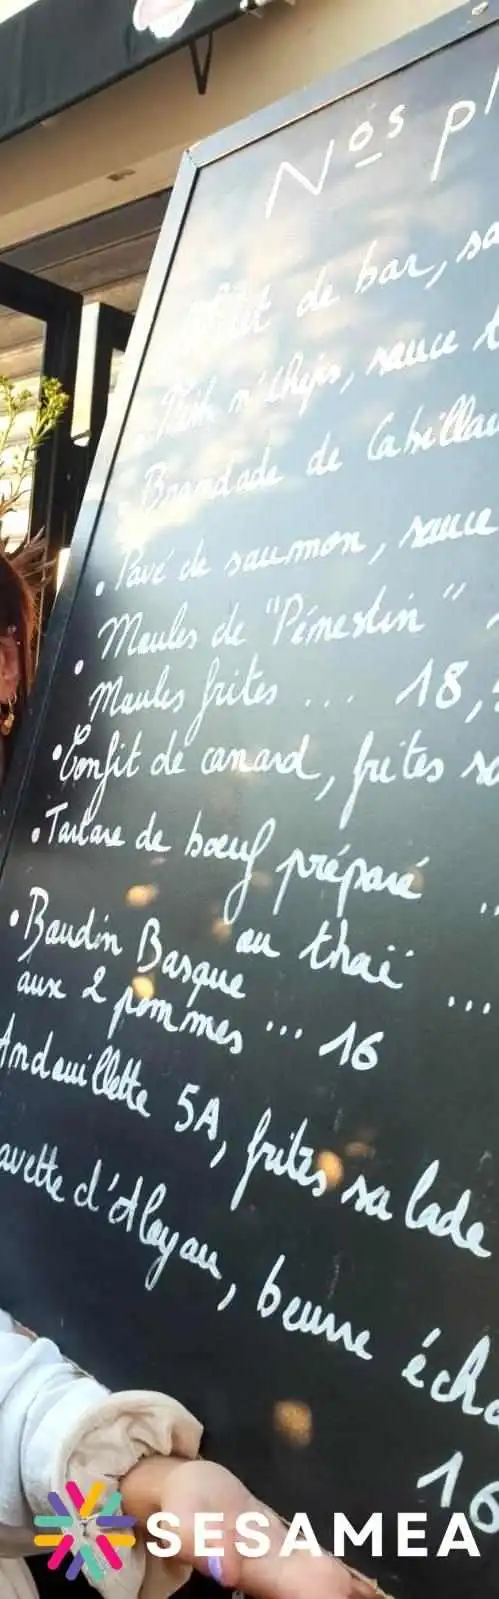 Nos pl
Filet de bar, sa
Fish n'chips, sauce t
Brandade de Cabillau
• Pavé de saumon, sauce
• Meules de "Pénestin"
Moules frites ... 18,
• Confit de canard, frites sa
• Tartare de boeuf préparé ..
au thaï ...
• Boudin Basque
aux 2 pommes ... 16
Andouillette 5A, frites salade
avette d'Aloyau, beurre écha
16
SESAMEA